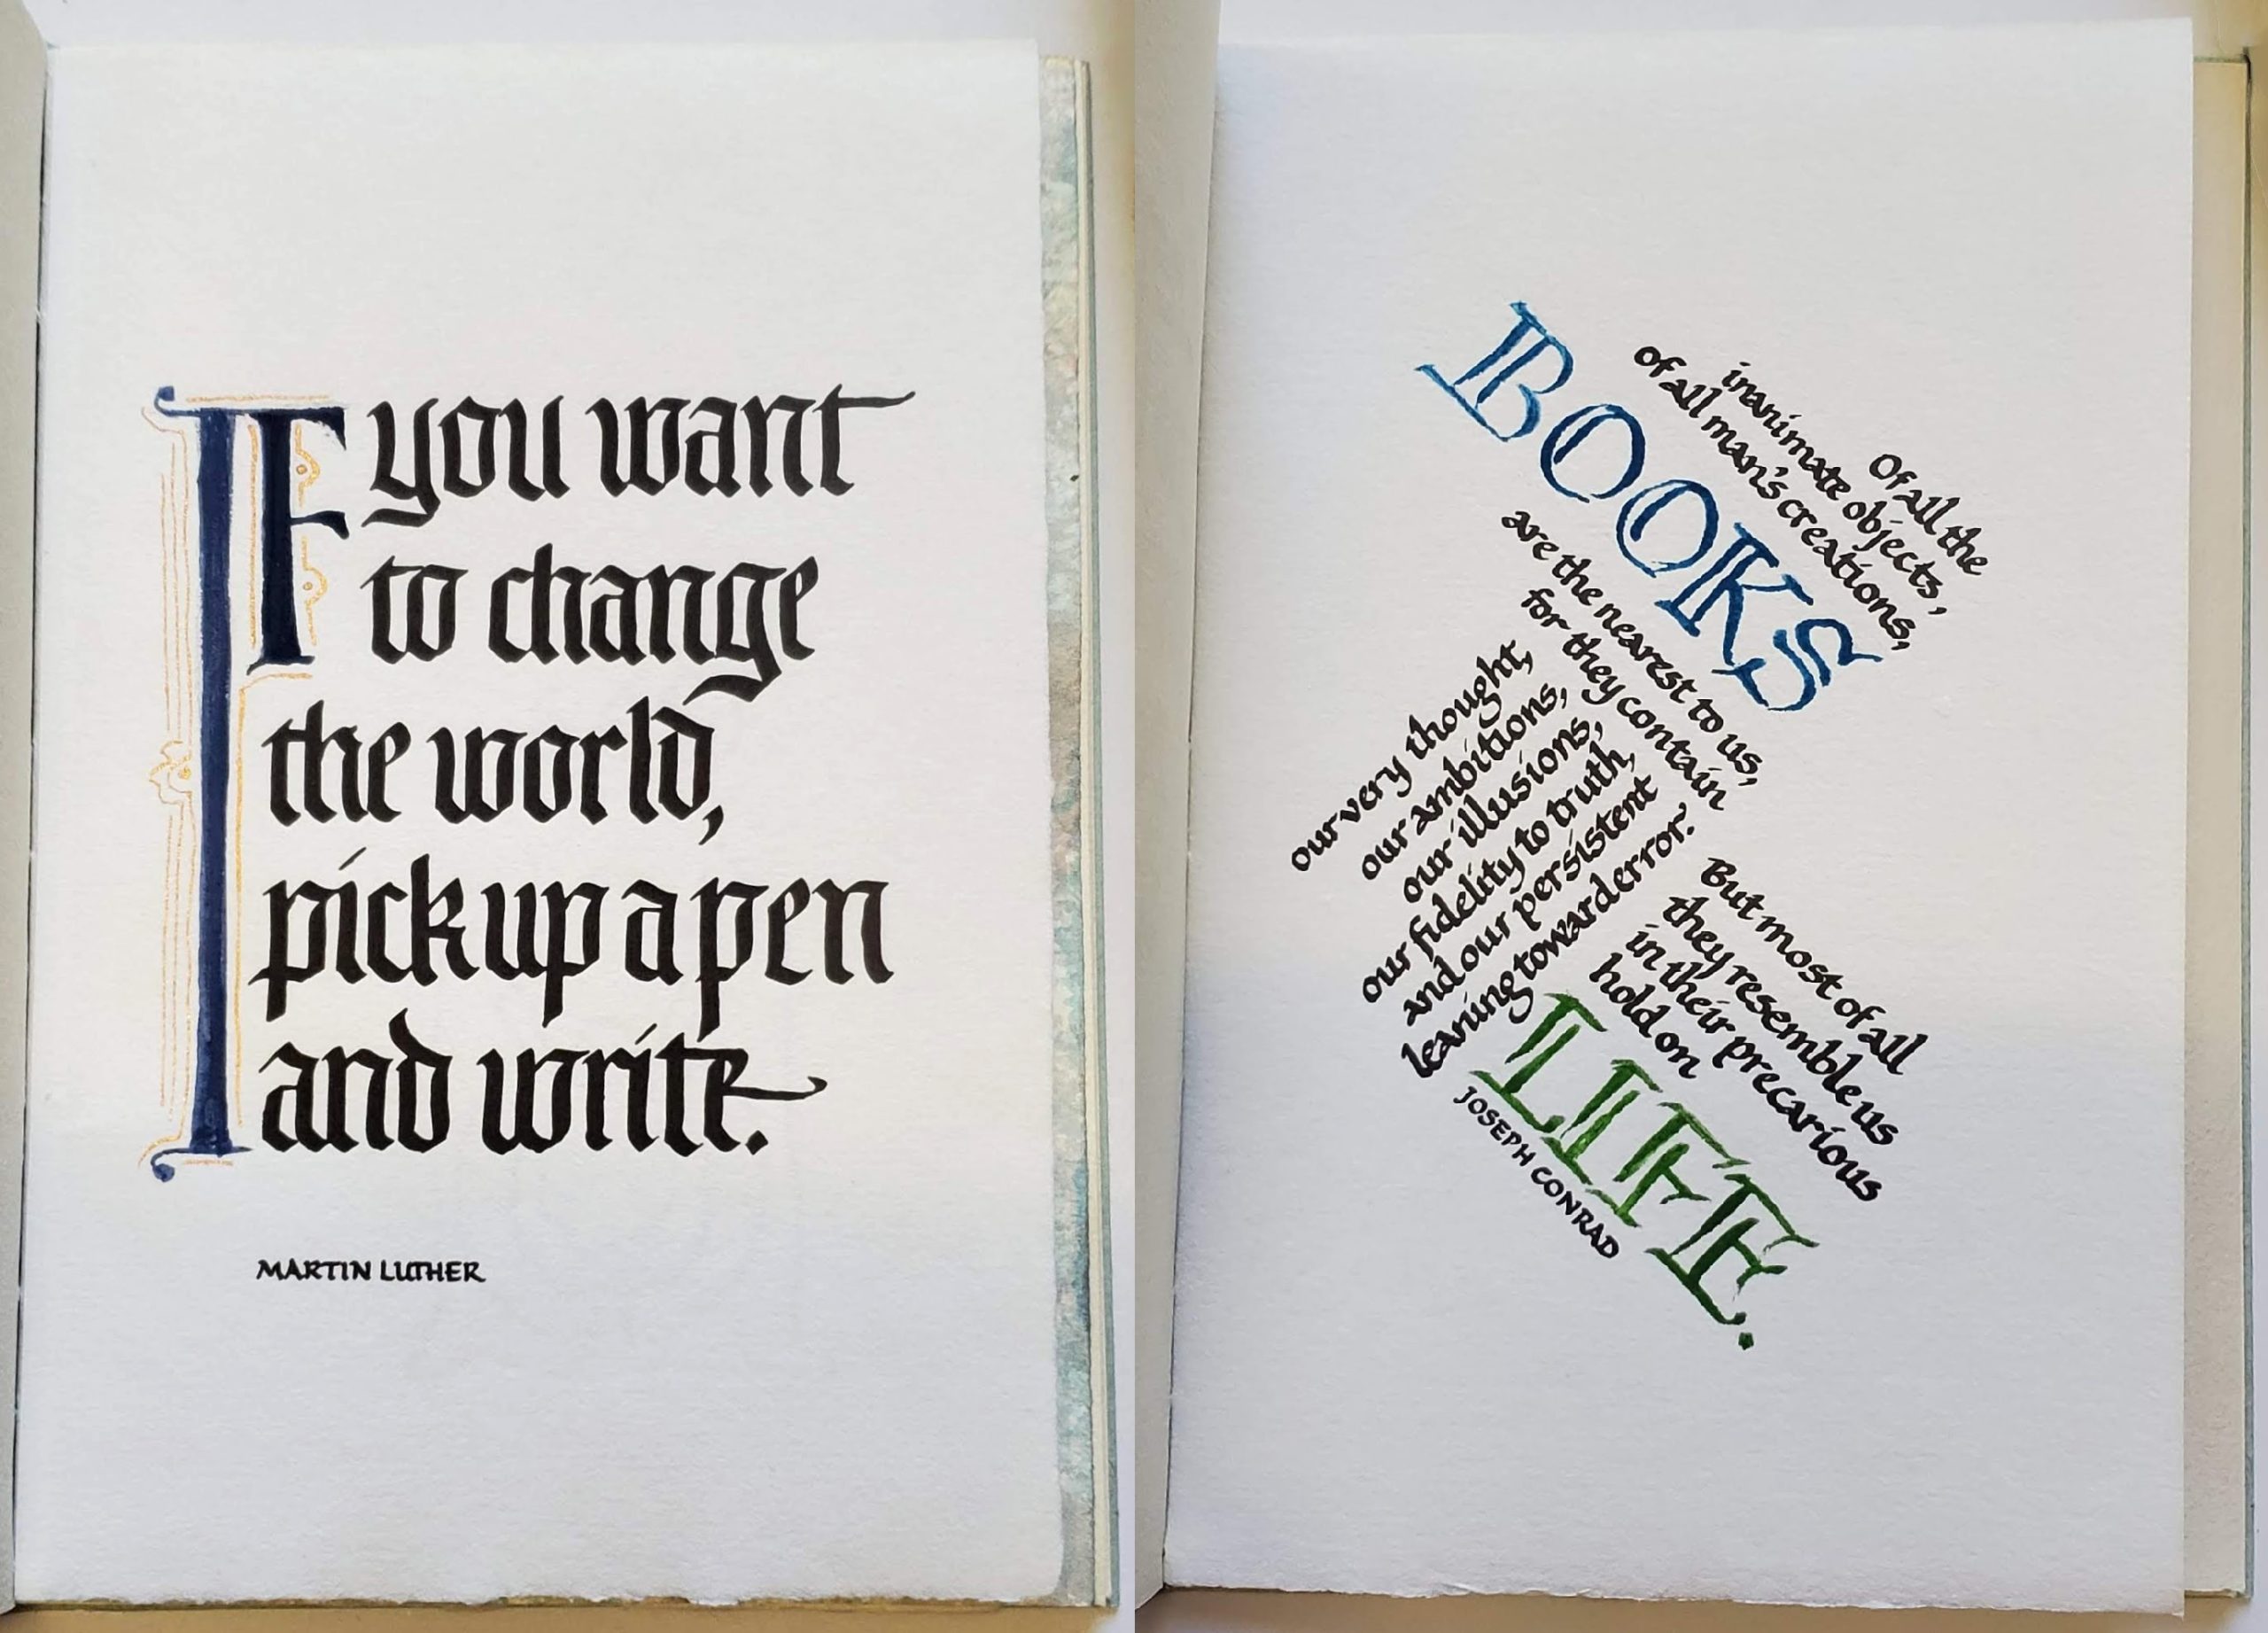 If you want
to change
the world,
pick up a pen
and write.
MARTIN LUTHER
Of all the
inanimate objects,
of all man's creations,
BOOKS
are the nearest to us,
for they contain
our very thought,
our ambitions,
our illusions,
our fidelity to truth,
and our persistent
leaning toward error.
But most of all
they resemble us
in their precarious
hold on
LIFE.
JOSEPH CONRAD